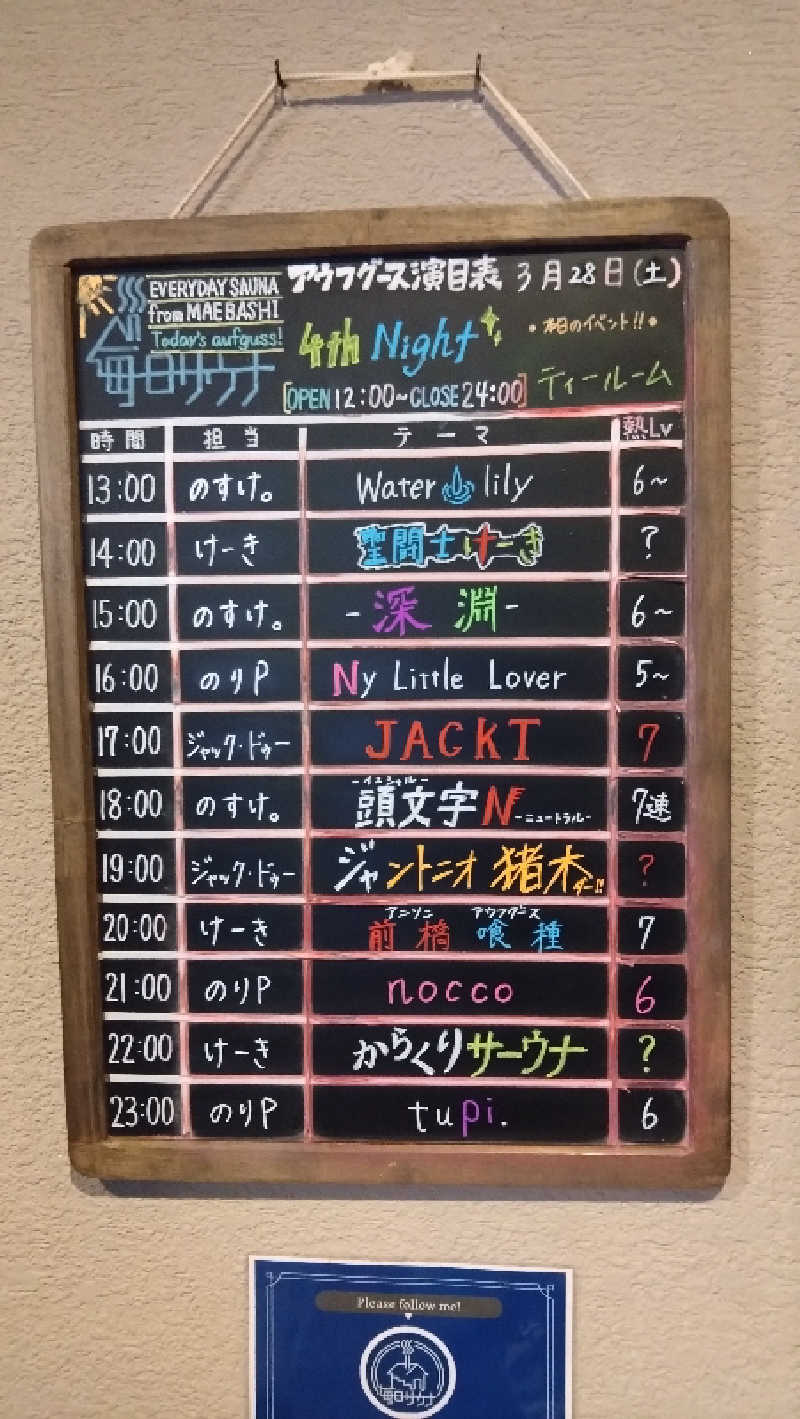 EVERYDAY SAUNA
from MAEBASHI
Today's aufguss!
毎日サウナ
アウフグース演目表 3月28日(土)
4th Night
•本日のイベント!!•
[OPEN 12:00~CLOSE 24:00]
ティールーム
時間 担当 テーマ 熱Lv
13:00 のすけ。 Water lily 6~
14:00 けーき 聖闘士けーき ?
15:00 のすけ。 -深淵- 6~
16:00 のりP Ny Little Lover 5~
17:00 ジャック・ドゥー JACKT 7
-イニシャル-
18:00 のすけ。 頭文字N -ニュートラル- 7速
19:00 ジャック・ドゥー ジャントニオ 猪木ダー!! ?
アニソン アウフグース
20:00 けーき 前橋 喰種 7
21:00 のりP nocco 6
22:00 けーき からくりサーウナ ?
23:00 のりP tupi. 6
Please follow me!
毎日サウナ